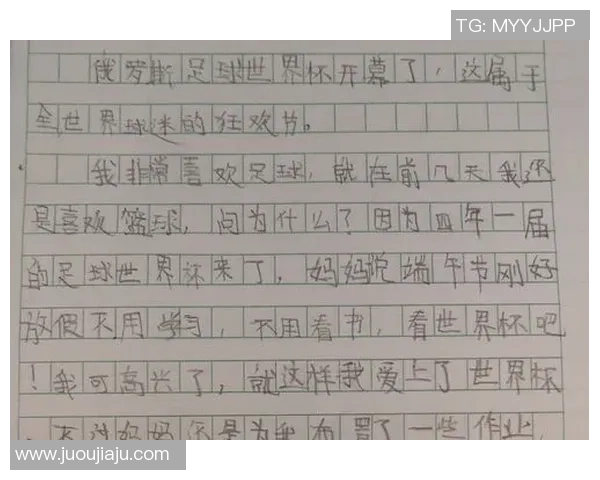 TG: MYYJJPP
俄罗斯足球世界杯开幕了,这属于
全世界球迷的狂欢节。
我非常喜欢足球,就在前几天我还
是喜欢篮球,问为什么?因为四年一届
的足球世界杯来了,妈妈说端午节刚好
放假不用学习,不用看书,看世界杯吧
!我可高兴了,就这样我爱上了世界杯
。不过妈妈还是为我布置了一些作业,
www.juoujiaju.com